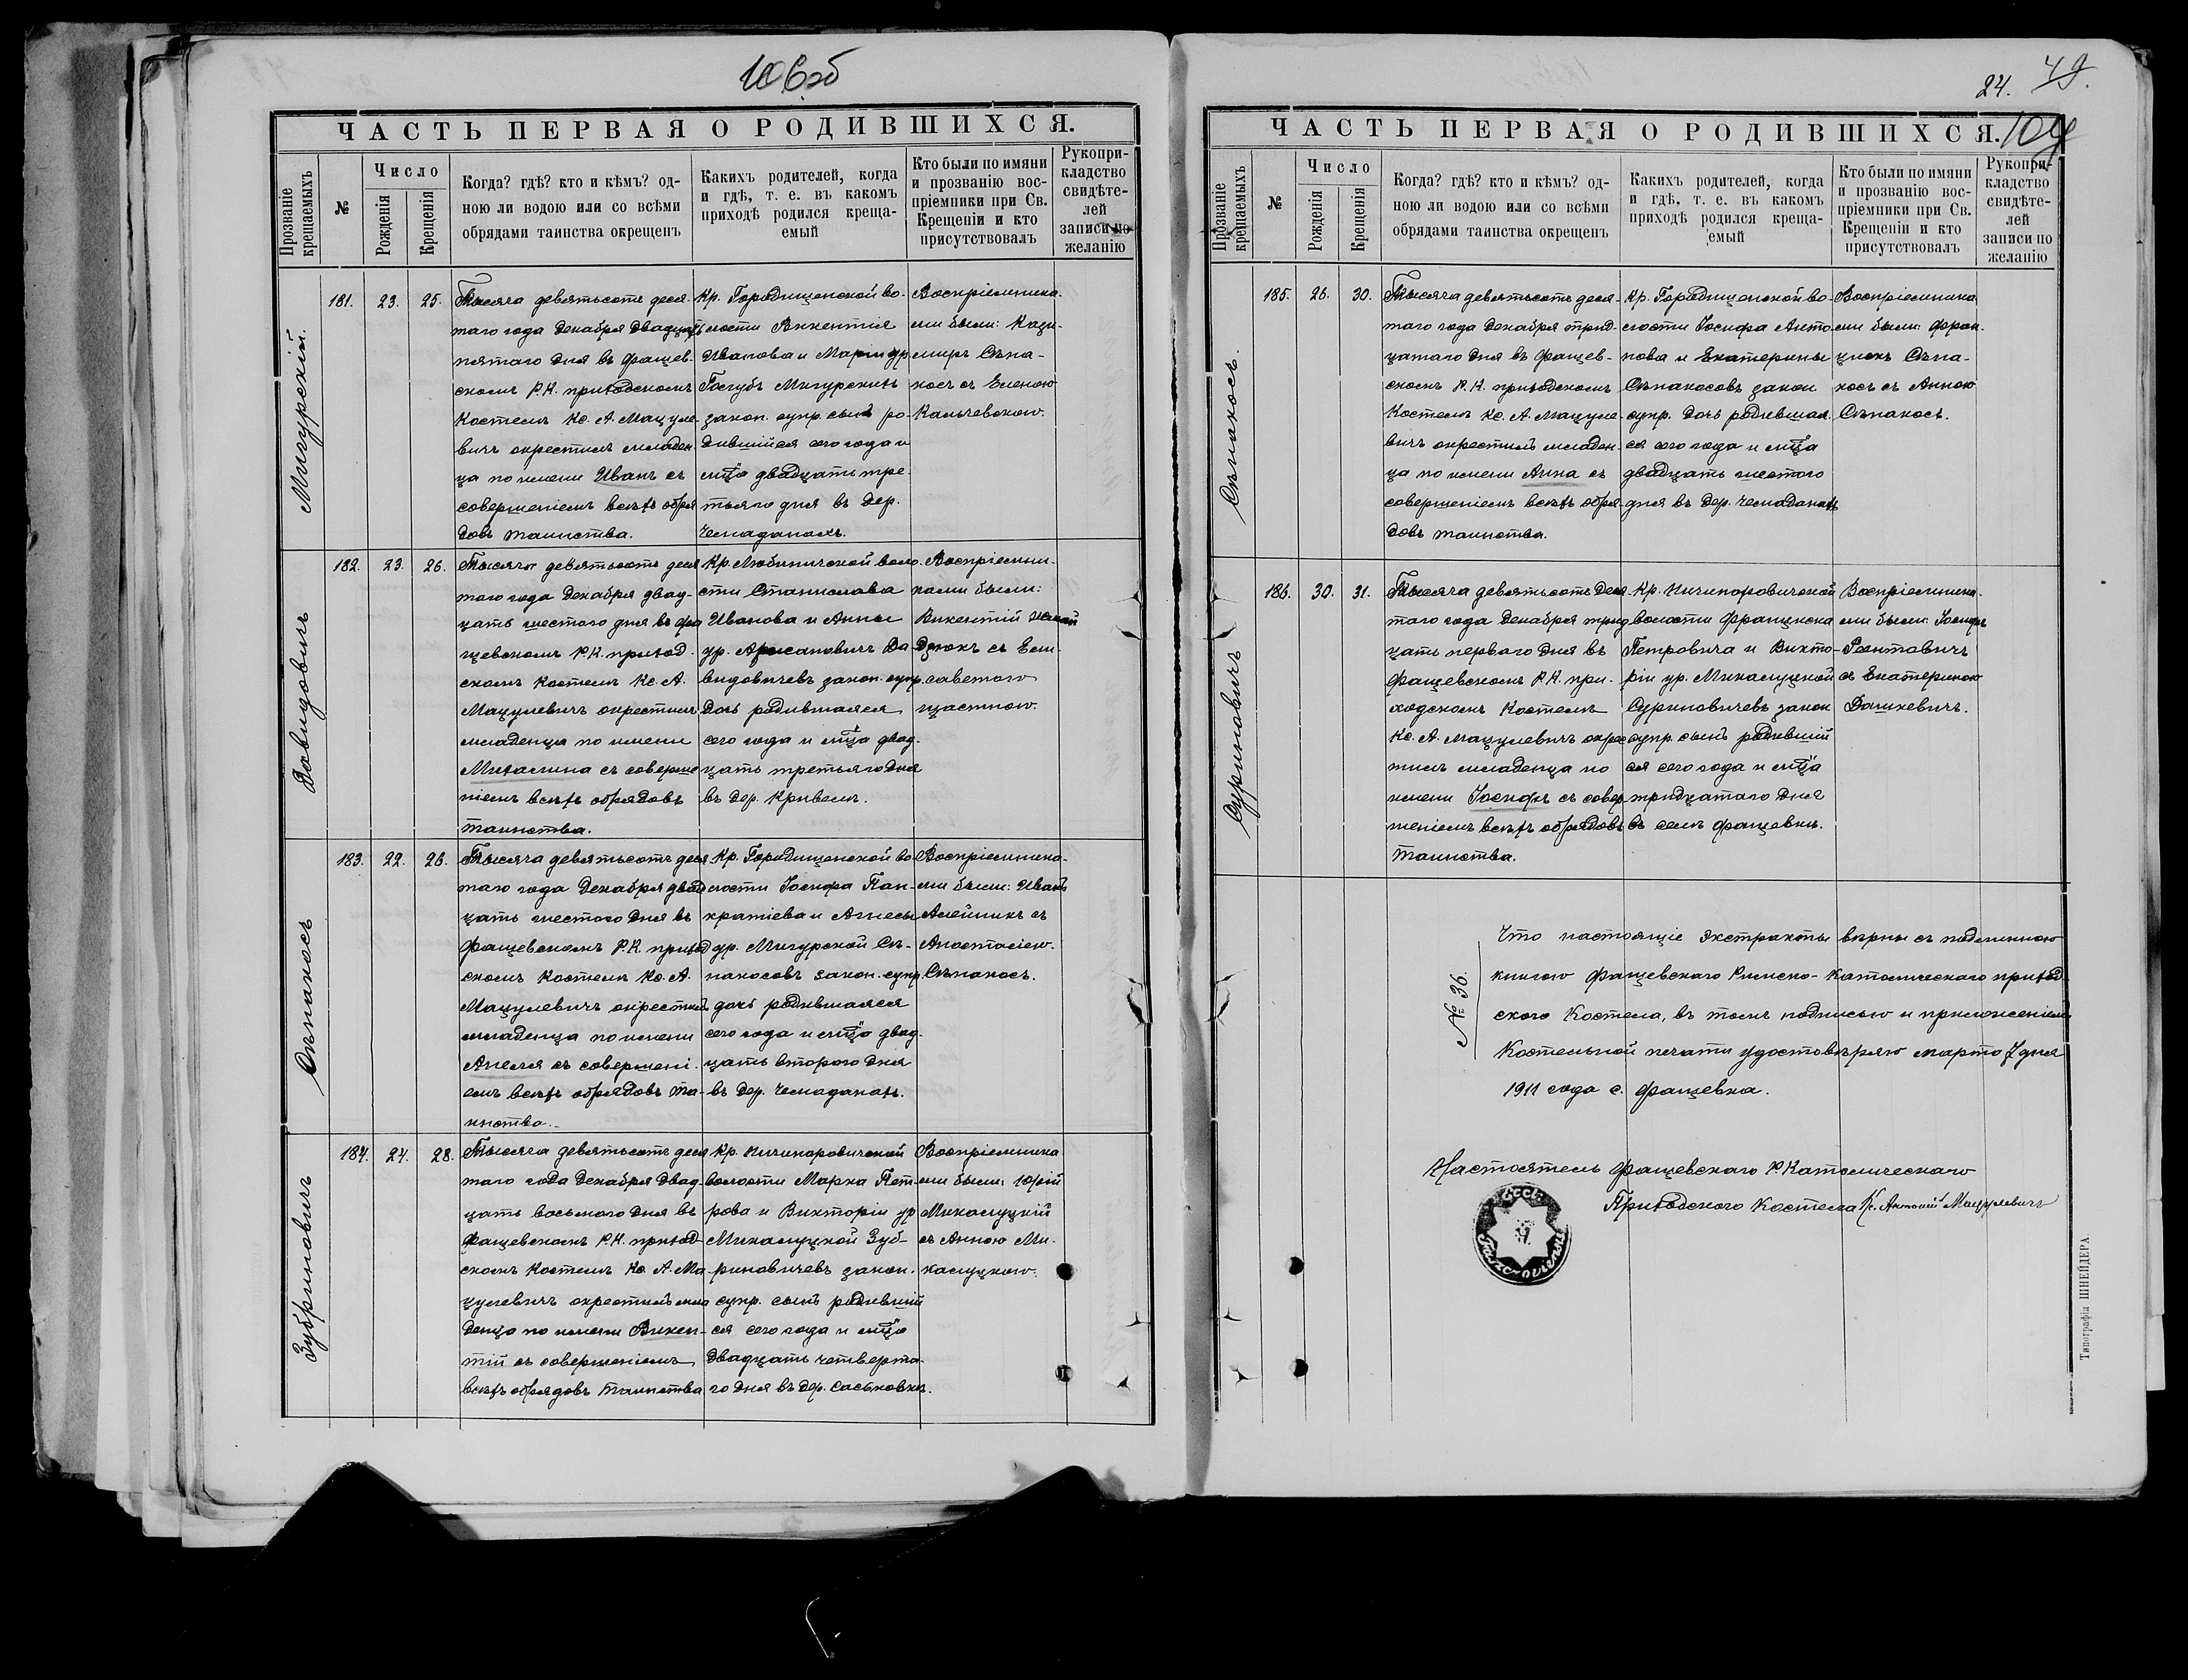 106об
ЧАСТЬ ПЕРВАЯ О РОДИВШИХСЯ.
Прозваніе крещаемыхъ
№
Число
Рожденія
Крещенія
Когда? гдѣ? кто и кѣмъ? од-
ною ли водою или со всѣми
обрядами таинства окрещенъ
Какихъ родителей, когда
и гдѣ, т. е. въ какомъ
приходѣ родился креща-
емый
Кто были по имяни
и прозванію вос-
пріемники при Св.
Крещеніи и кто
присутствовалъ
Рукопри-
кладство
свидѣте-
лей
записи по
желанію
Мигурскій.
181. 23. 25.
Тысяча девятьсотъ деся-
таго года Декабря двадцать
пятаго дня въ Фащев-
скомъ Р.К. приходскомъ
Костелѣ Кс. А. Мацуле-
вичъ окрестилъ младен-
ца по имени Иванъ съ
совершеніемъ всѣхъ обря
довъ таинства.
Кр. Городищенской во-
лости Викентія
Иванова и Маріи ур
Госубъ Мигурскихъ
закон. супр. сынъ ро-
дившійся сего года и
мца двадцать тре-
тьяго дня въ дер.
Чемаданахъ.
Воспріемника-
ми были: Кази-
миръ Сѣна-
косъ съ Еленою
Кальчевскою.
Давидовичъ
182. 23. 26.
Тысяча девятьсотъ деся
таго года Декабря двад-
цать шестого дня въ Фа
щевскомъ Р.К. приход-
скомъ Костелѣ Кс. А.
Мацулевичъ окрестилъ
младенца по имени
Михалина съ соверше
ніемъ всѣхъ обрядовъ
таинства.
Кр. Любиничской воло-
сти Станислава
Иванова и Анны
ур. Да-
видовичевъ закон. супр.
Дочь родившаяся
сего года и мца двад-
цать третьяго дня
въ дер. Кривелѣ.
Воспріемни-
ками были:
Викентій
съ Ели-
саветою
Щастною.
Сѣнакосъ
183. 22. 26.
Тысяча девятьсотъ деся
таго года Декабря двад
цать шестого дня въ
Фащевскомъ Р.К. приход
скомъ Костелѣ Кс. А.
Мацулевичъ окрестилъ
младенца по имени
Анеля съ совершені-
емъ всѣхъ обрядовъ та-
инства.
Кр. Городищенской во-
лости Іосифа Пан-
кратіева и Агнесы
ур. Мигурской Сѣ-
накосовъ закон. супр.
дочь родившаяся
сего года и мца двад-
цать второго дня
въ дер. Чемаданахъ.
Воспріемника-
ми были: Иванъ
Алейникъ съ
Анастасіею
Сѣнакосъ.
Зубриновичъ
184. 24. 28.
Тысяча девятьсотъ деся
таго года Декабря двад-
цать восьмого дня въ
Фащевскомъ Р.К. приход-
скомъ Костелѣ Кс. А. Ма-
цулевичъ окрестилъ мла
денца по имени Викен-
тій съ совершеніемъ
всѣхъ обрядовъ таинства
Кр. Ничипоровичской
волости Марка Пет-
рова и Викторіи ур
Микалуцкой Зуб-
риновичевъ закон.
супр. сынъ родившій
ся сего года и мца
двадцать четверта-
го дня въ дер. Саськовкѣ.
Воспріемника
ми были: Юрій
Микалуцкій
съ Анною Ми-
калуцкою.
24. 49.
109
ЧАСТЬ ПЕРВАЯ О РОДИВШИХСЯ.
Прозваніе крещаемыхъ
№
Число
Рожденія
Крещенія
Когда? гдѣ? кто и кѣмъ? од-
ною ли водою или со всѣми
обрядами таинства окрещенъ
Какихъ родителей, когда
и гдѣ, т. е. въ какомъ
приходѣ родился креща-
емый
Кто были по имяни
и прозванію вос-
пріемники при Св.
Крещеніи и кто
присутствовалъ
Рукопри-
кладство
свидѣте-
лей
записи по
желанію
Сѣнакосъ.
185. 26. 30.
Тысяча девятьсотъ деся-
таго года Декабря трид-
цатаго дня въ Фащев-
скомъ Р.К. приходскомъ
Костелѣ Кс. А. Мацуле-
вичъ окрестилъ младен-
ца по имени Анна съ
совершеніемъ всѣхъ обря-
довъ таинства.
Кр. Городищенской во-
лости Іосифа Анто-
нова и Екатерины
Сѣнакосовъ закон
супр. дочь родившая-
ся сего года и мца
двадцать шестого
дня въ дер. Чемаданахъ
Воспріемника
ми были: Фран-
цискъ Сѣна-
косъ съ Анною
Сѣнакосъ.
Суриновичъ
186. 30. 31.
Тысяча девятьсотъ деся-
таго года Декабря трид
цать перваго дня въ
Фащевскомъ Р.К. при-
ходскомъ Костелѣ
Кс. А. Мацулевичъ окре
стилъ младенца по
имени Іосифъ съ совер
шеніемъ всѣхъ обрядовъ
таинства.
Кр. Ничипоровичской
волости Франциска
Петровича и Викто-
ріи ур. Микалуцкой
Суриновичевъ закон
супр. сынъ родившій
ся сего года и мца
тридцатаго дня
въ селѣ Фащевкѣ.
Воспріемника-
ми были: Іосифъ
Раентовичъ
съ Екатериною
Дашкевичъ.
№ 36.
Что настоящіе экстракты вѣрны съ подлинною
книгою Фащевскаго Римско-Католическаго приход
ского Костела, въ томъ подписью и приложеніемъ
Костельной печати удостовѣряю марта 7 дня
1911 года с. Фащевка.
Настоятель Фащевскаго Р. Католическаго
Приходского Костела Кс. Антоній Мацулевичъ
Типографія ШНЕЙДЕРА